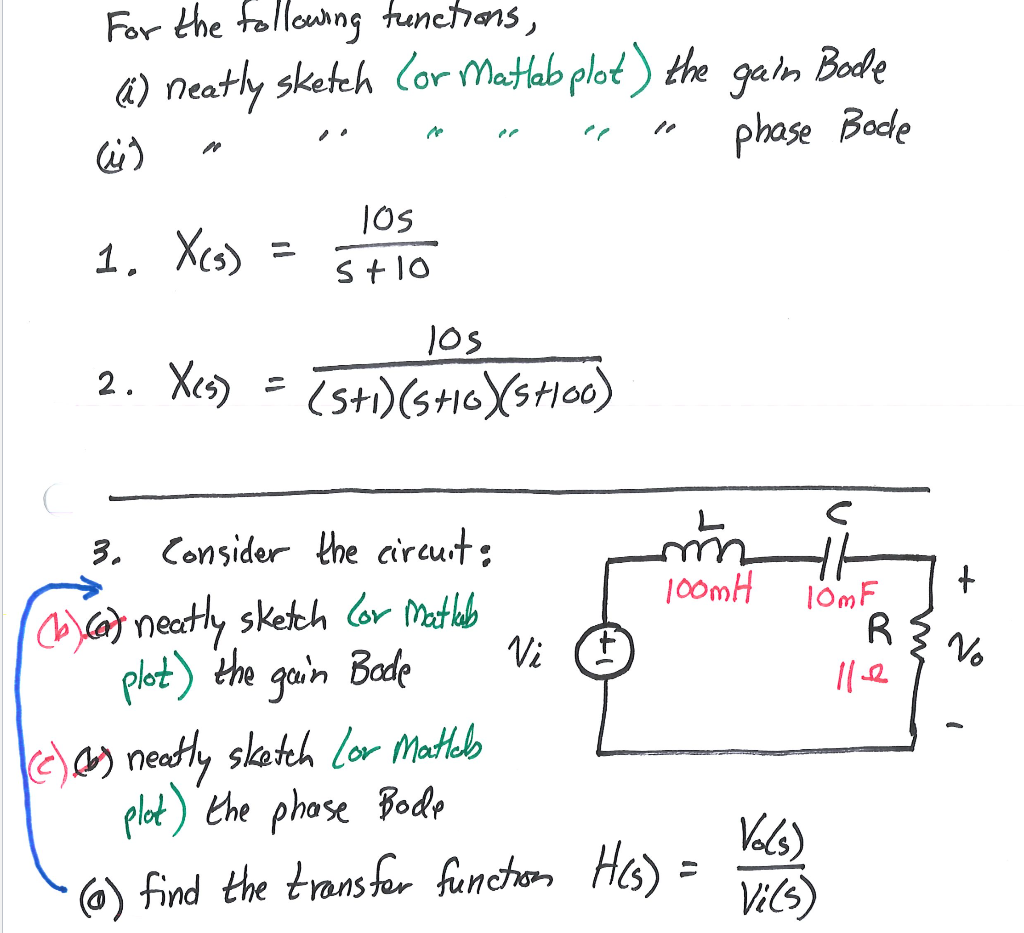 For the following functions,
(i) neatly sketch (or Matlab plot) the gain Bode
(ii) " " " " " " phase Bode
1. X(s) = 10s / s+10
2. X(s) = 10s / (s+1)(s+10)(s+100)
3. Consider the circuit:
(b) (a) neatly sketch (or Matlab
plot) the gain Bode
(c) (b) neatly sketch (or Matlab
plot) the phase Bode
(a) find the transfer function H(s) = Vo(s) / Vi(s)
L
C
100mH
10mF
R
11Ω
Vi
+
-
+
Vo
-